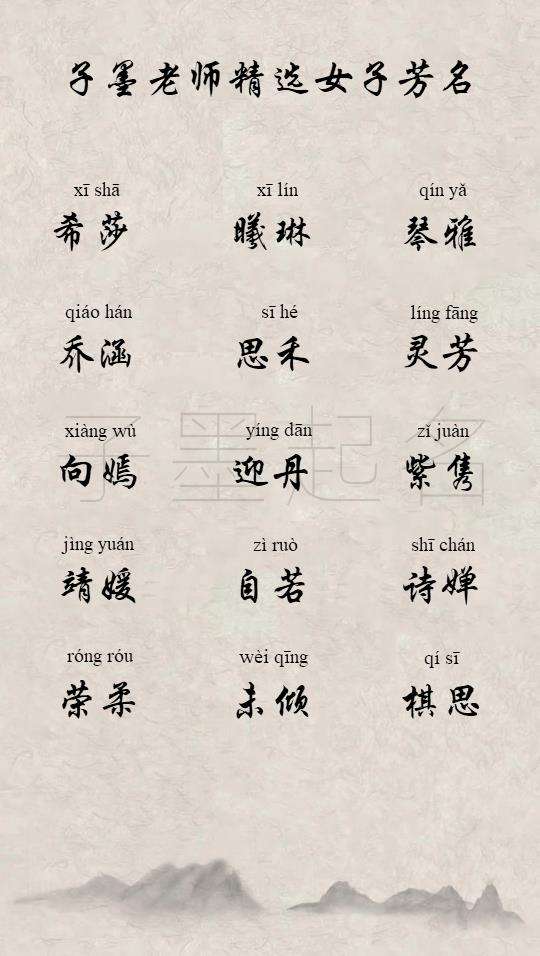 子墨老师精选女子芳名
xī shā xī lín qín yǎ
希莎 曦琳 琴雅
qiáo hán sī hé líng fāng
乔涵 思禾 灵芳
xiàng wǔ yíng dān zǐ juàn
向嫣 迎丹 紫隽
子墨起名
jìng yuán zì ruò shī chán
靖媛 自若 诗婵
róng róu wèi qīng qí sī
荣柔 未倾 棋思